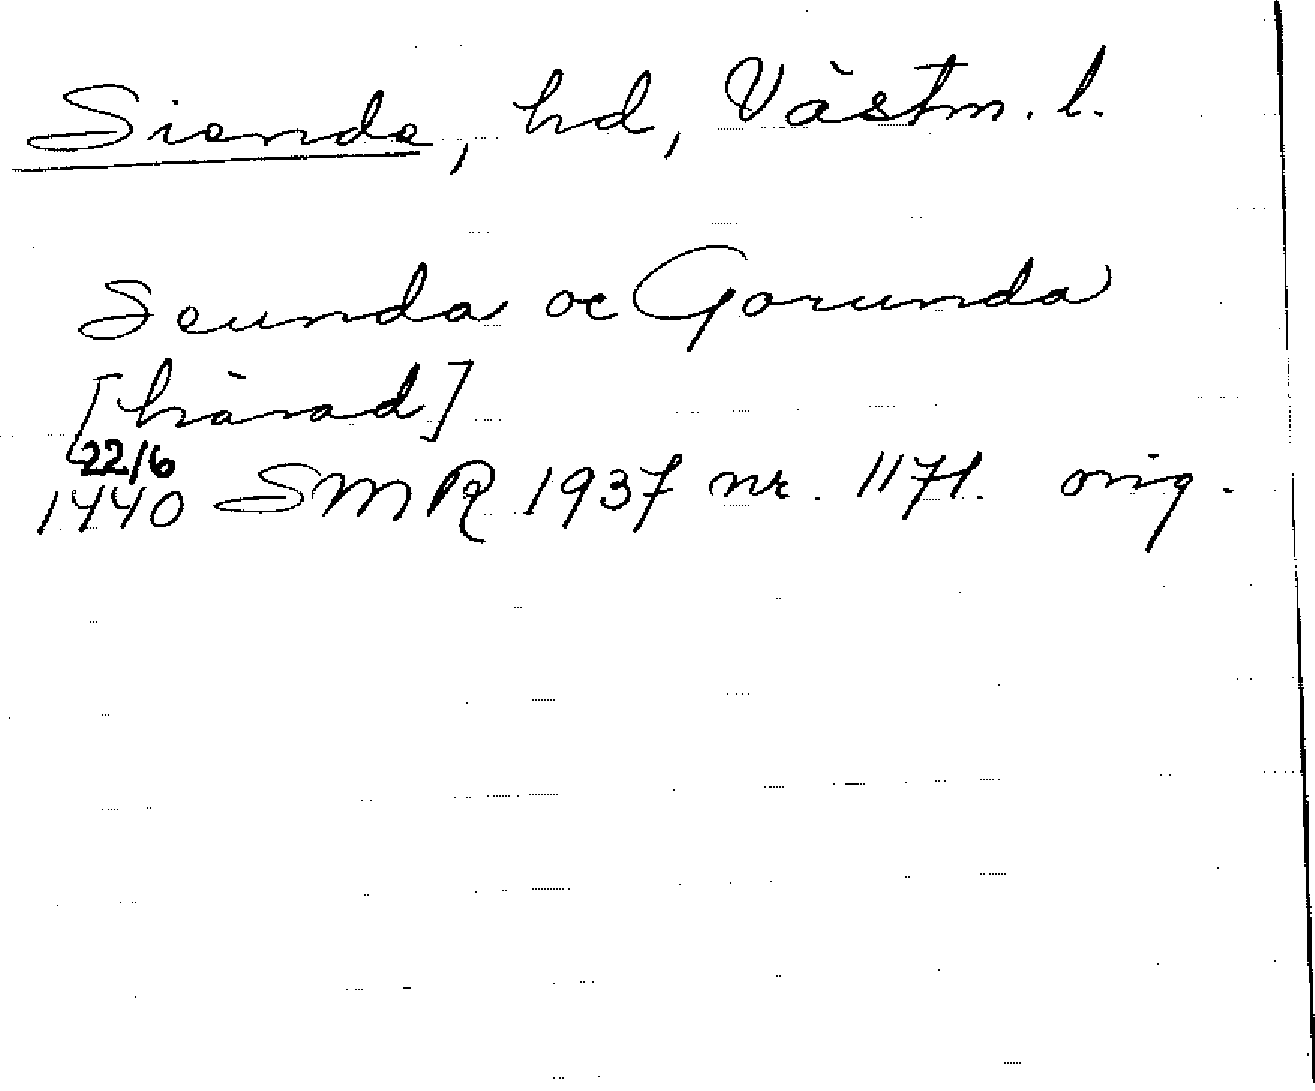 Siende, hd, Västm. l.
Seunda oc Gorunda
[härad]
22/6
1440 SMR 1937 nr. 1171. orig.